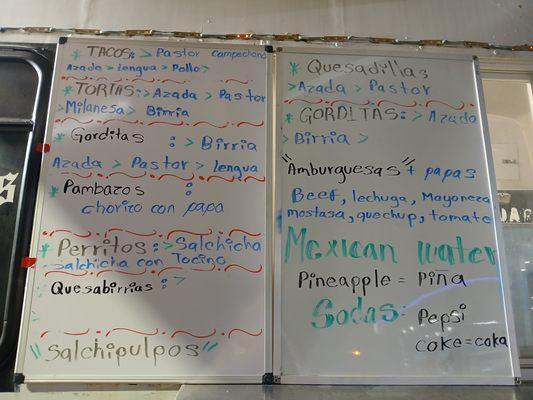 * TACOS: > Pastor Campechano
Azada > Lengua > Pollo >
* TORTAS: > Azada > Pastor
> Milanesa > Birria
* Gorditas : > Birria
Azada > Pastor > lengua
* Pambazos :
chorizo con papa
* Perritos : > Salchicha
Salchicha con Tocino
Quesabirrias : >
"Salchipulpos"
* Quesadillas
> Azada > Pastor
* GORDITAS: > Azada
> Birria >
"Amburguesas" + papas
Beef, lechuga, Mayoneza
mostasa, quechup, tomate
Mexican water
Pineapple = Piña
Sodas: Pepsi
coke = coka